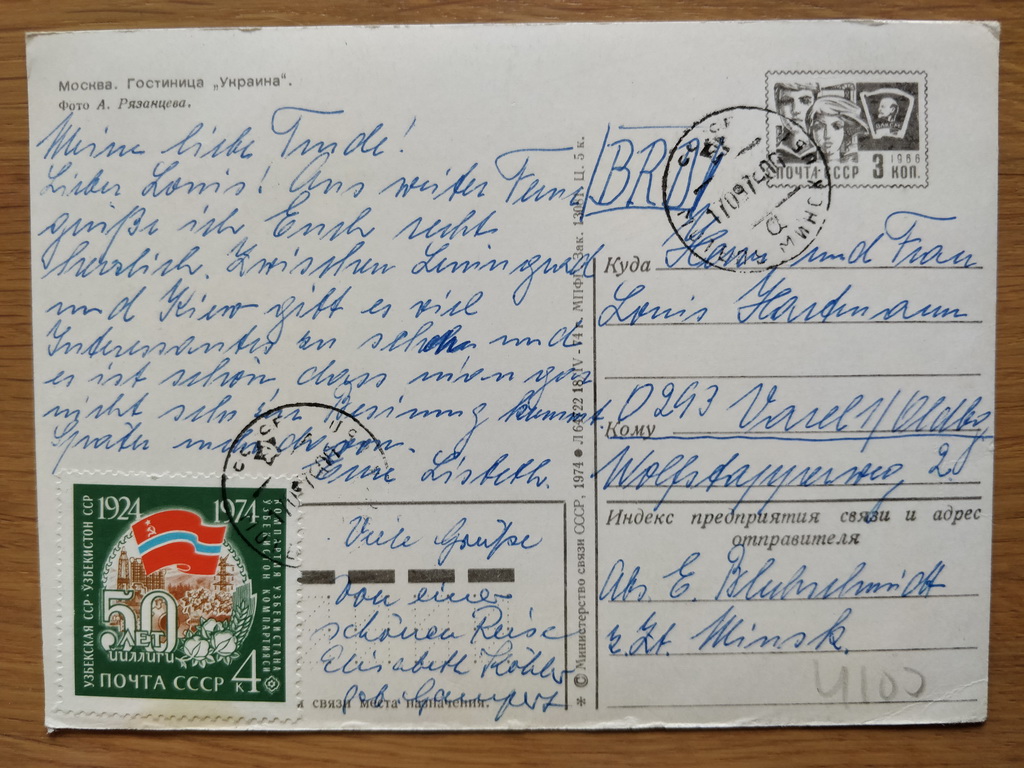 Москва. Гостиница „Украина“.
Фото А. Рязанцева.
Meine liebe Trude!
Lieber Louis! Aus weiter Ferne
grüße ich Euch recht
herzlich. Zwischen Leningrad
und Kiew gibt es viel
Interessantes zu sehen und
es ist schön, dass man gar
nicht sehr zur Besinnung kommt.
Später mehr davon.
Eine Lisbeth.
Viele Grüße
von einer
schönen Reise
Elisabeth Köhler
geb. Gampert
связи места назначения.
1924 1974
УЗБЕКСКАЯ ССР · ЎЗБЕКИСТОН ССР
КОМПАРТИЯ УЗБЕКИСТАНА
ЎЗБЕКИСТОН КОМПАРТИЯСИ
50
ЛЕТ
ЙИЛЛИГИ
ПОЧТА СССР 4 К
* © Министерство связи СССР, 1974 ● 18/IV-74 г. МПФГ. Зак. Ц. 5 к.
BRD
ПОЧТА СССР 3 КОП.
1966
СССР
МИНСК
Куда Herrn und Frau
Louis Hartmann
D 293 Varel 1/Oldbg
Кому
Wolfstapperweg 2.
Индекс предприятия связи и адрес
отправителя
Abs. E. Bluhschmidt
z. Zt. Minsk.